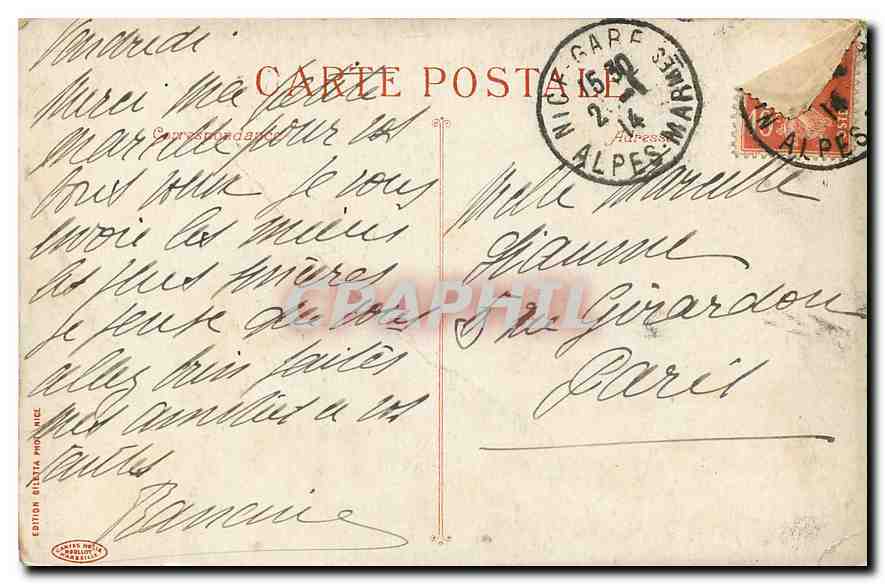 Vendredi
CARTE POSTALE
Correspondance
Adresse
Merci ma petite
Marcelle pour vos
bons voeux je vous
envoie les miens
les plus sincères
je pense que vous
allez bien faites
mes amitiés à vos
tantes
NICE-GARE
15 30
2 - 1
14
ALPES-MARMES
10
POSTES
14
ALPES
Melle Marcelle
Rue Girardon
Paris
CRAPHIL
EDITION GILETTA PHOT. NICE
CARTES POSTALES
MARSEILLE